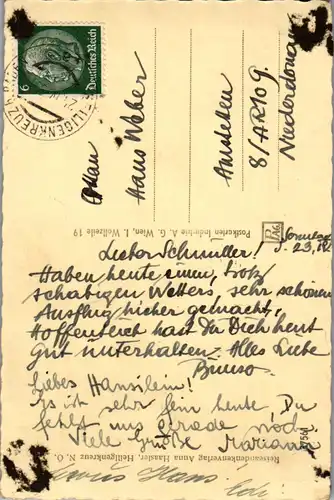 6
Deutsches Reich
HEILIGENKREUZ
Hans Weber
Amstetten
8/AR109.
Niederdonau
Postkarten Industrie A. G. Wien, I Wollzeile 19
Sonntag
23.
Lieber Schmuller!
Haben heute einen, trotz
schäbigen Wetters sehr schönen
Ausflug hieher gemacht,
Hoffentlich hast Du Dich heut
gut unterhalten. Alles Liebe
Bruno
Liebes Hansilein!
Es ist sehr fein heute Du
fehlst uns gerade noch
Viele Grüße Marianne
Reiseandenkenverlag Anna Haader, Heiligenkreuz N. Ö.
Hans